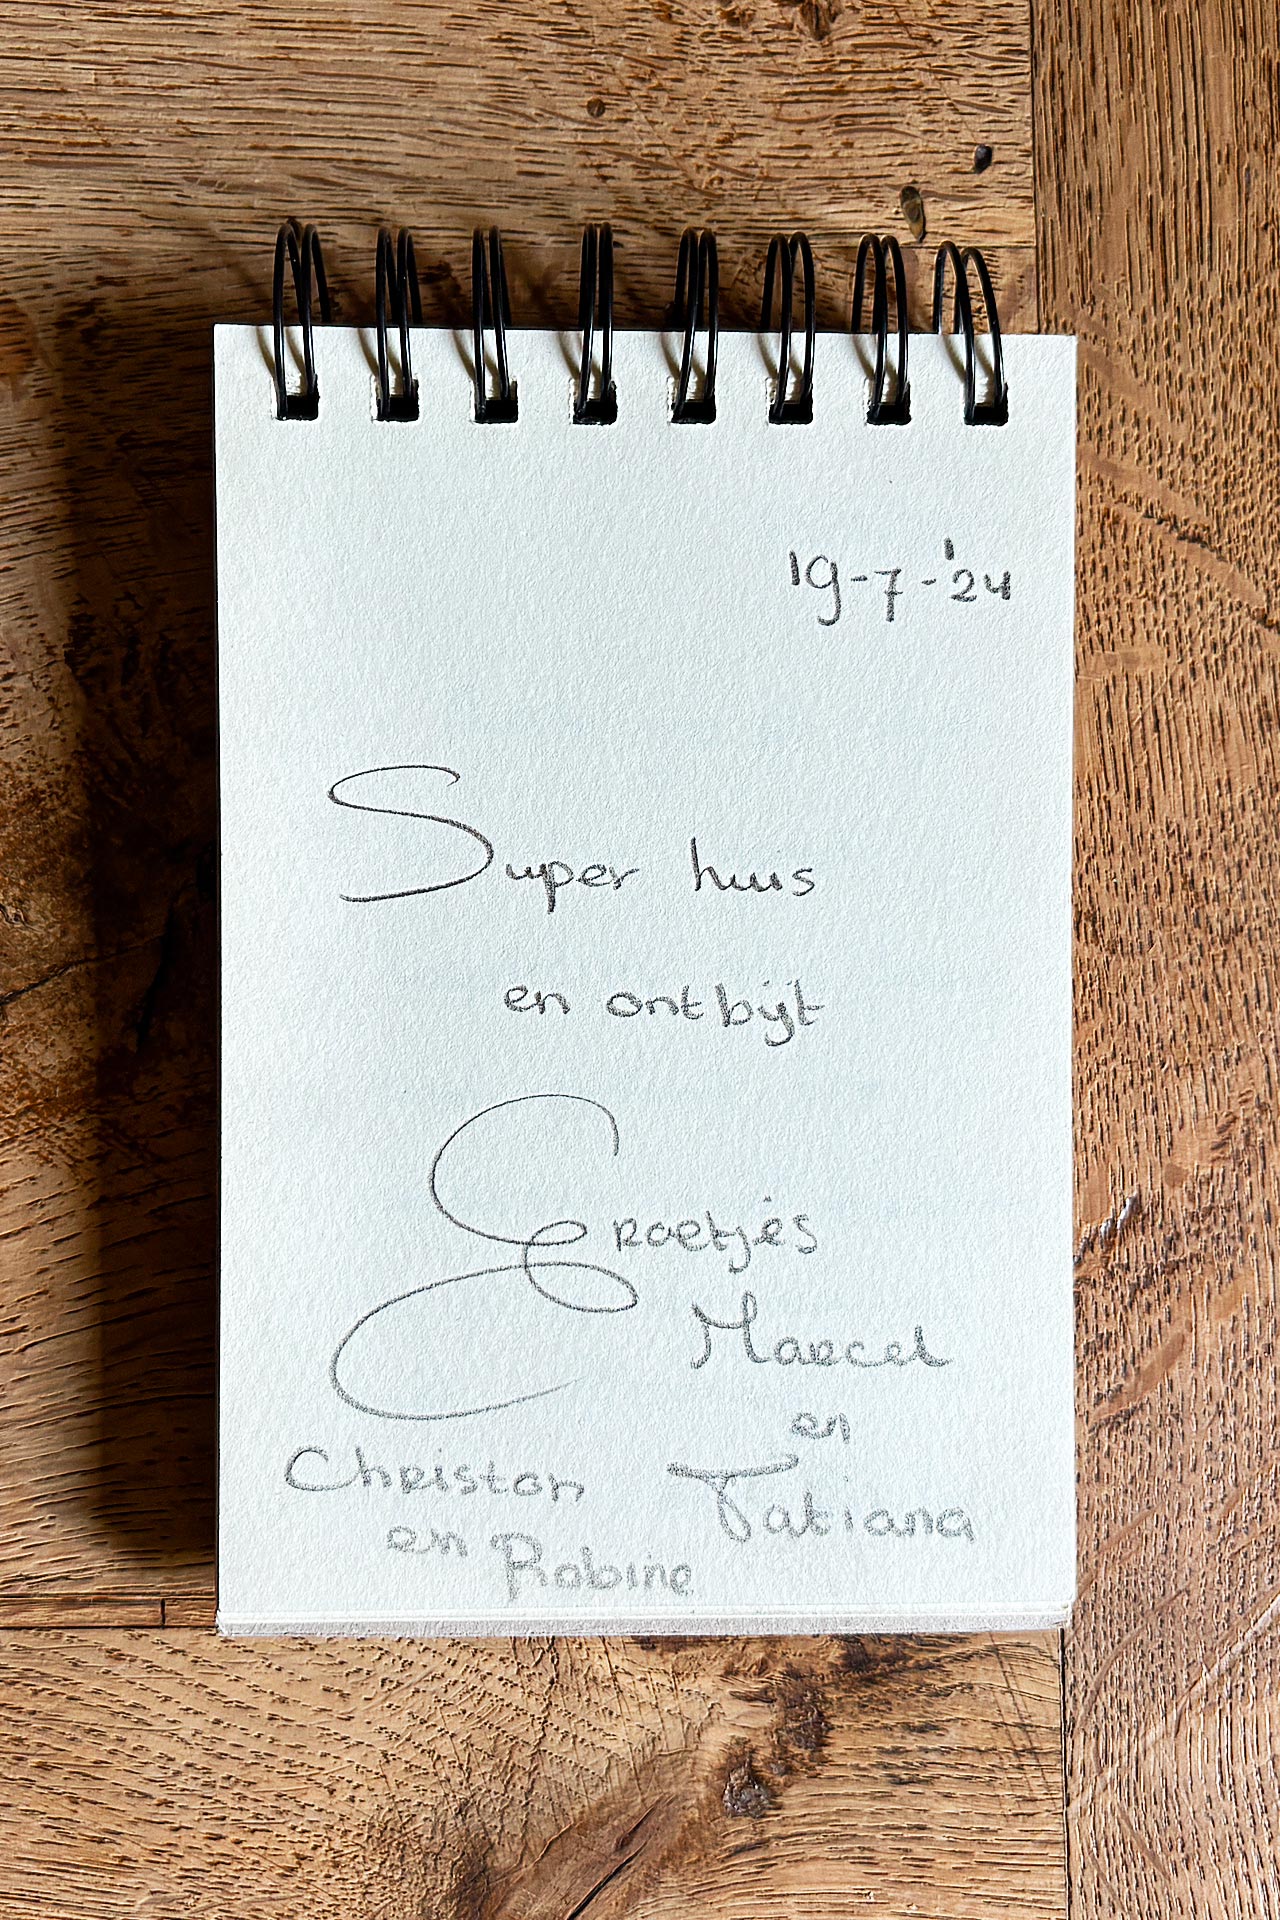 19-7-'24
Super huis
en ontbijt
Groetjes
Marcel
en
Tatiana
Christon
en Robine